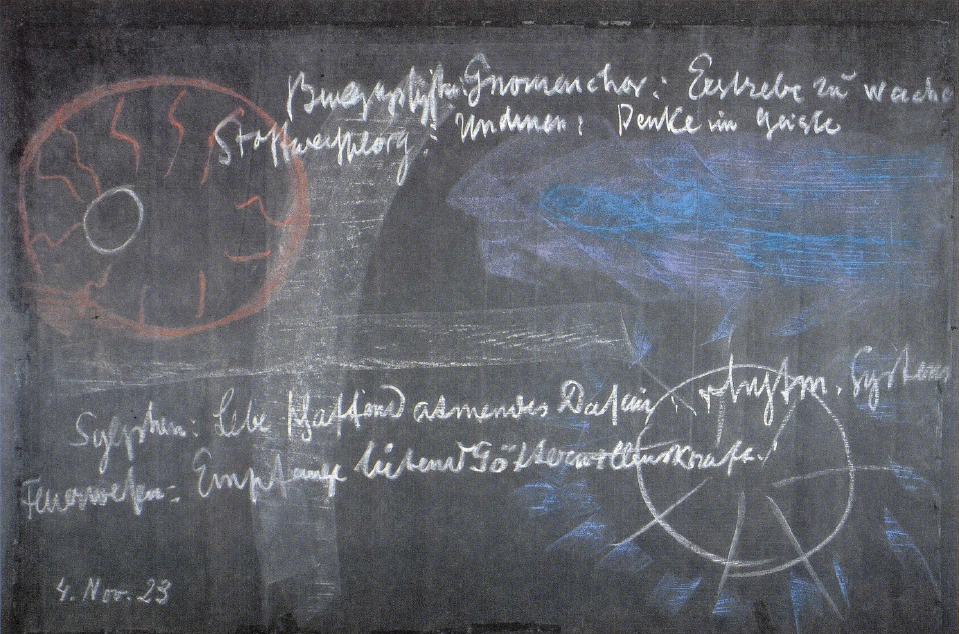 Bewegungssystem: Gnomenchor: Erstrebe zu wachen
Stoffwechselorg.: Undinen: Denke im Geiste
Sylphen: Lebe schaffend atmendes Dasein. rhythm. System
Feuerwesen: Empfange liebend Götterwillenskraft.
4. Nov. 23